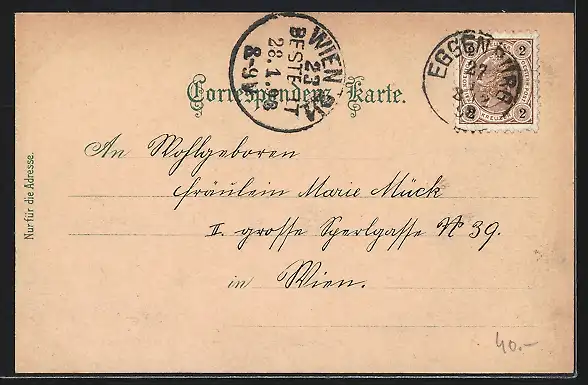 WIEN 2/1
23
BESTELLT
28.1.98
8-9V
EGGENBURG
27
2 2
2 2
KREUZER
Correspondenz-Karte.
Nur für die Adresse.
An Wohlgeboren
Fräulein Marie Mück
II. grosse Sperlgasse No 39.
in Wien.
40.-